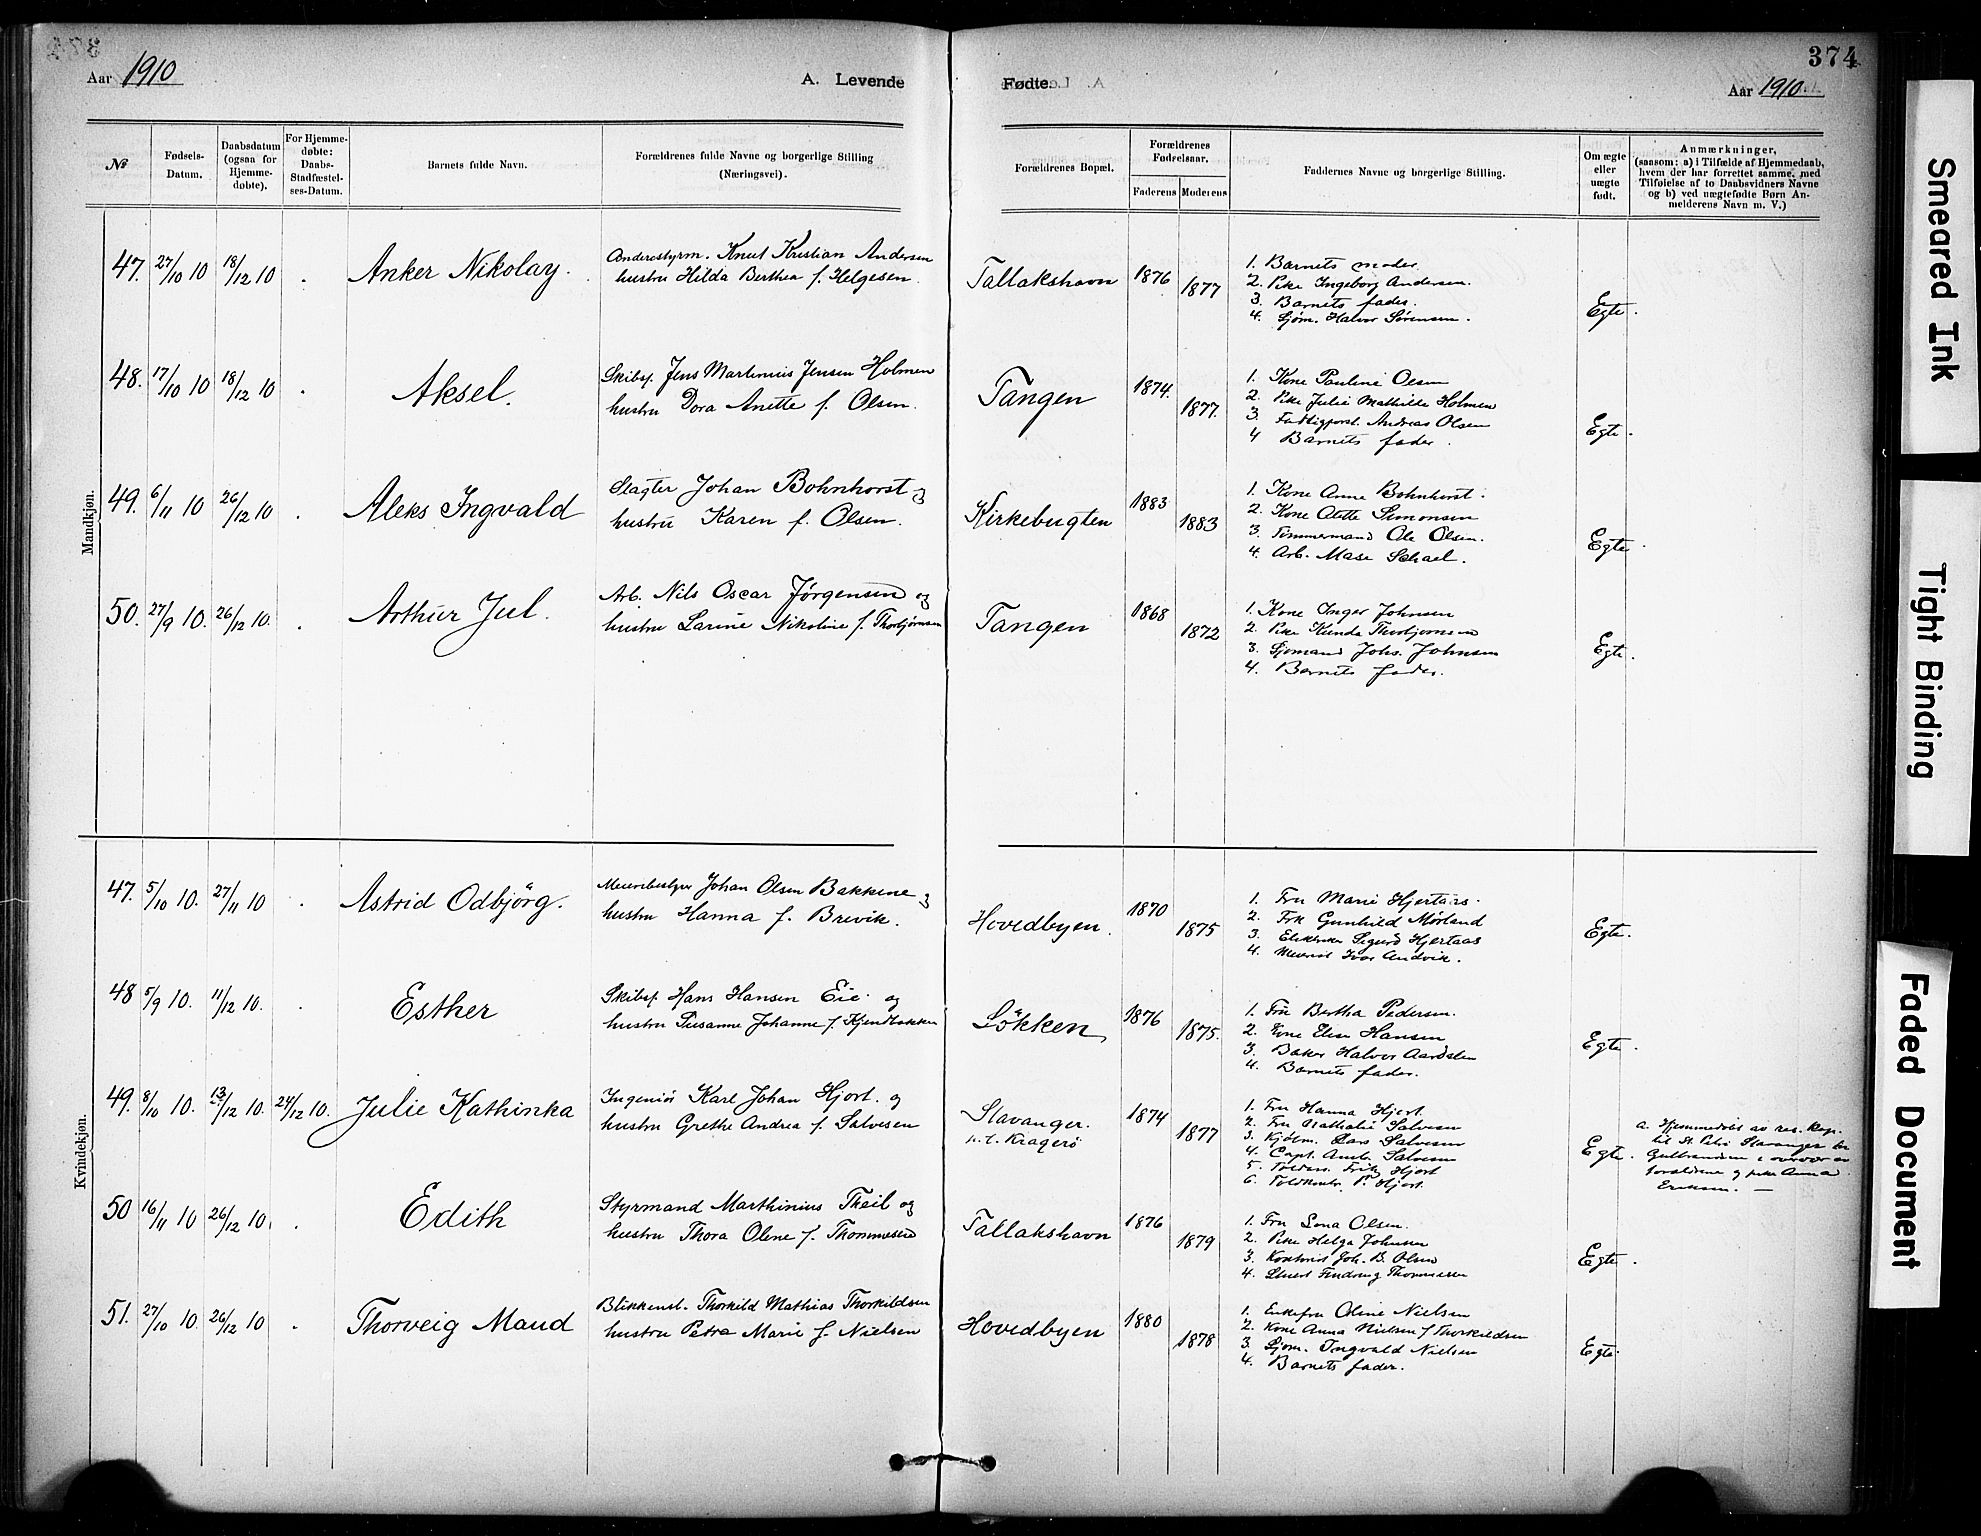 374
Aar 1910
A. Levende
Fødte.
Aar 1910
№
Fødsels-Datum.
Daabsdatum (ogsaa for Hjemmedøbte).
For Hjemmedøbte: Daabs-Stadfæstelses-Datum.
Barnets fulde Navn.
Forældrenes fulde Navne og borgerlige Stilling (Næringsvei).
Forældrenes Bopæl.
Forældrenes Fødselsaar.
Faderens
Moderens
Faddernes Navne og borgerlige Stilling.
Om ægte eller uægte født.
Anmærkninger,
(saasom: a) i Tilfælde af Hjemmedaab, hvem der har forrettet samme, med Tilføielse af to Daabsvidners Navne og b) ved uægtefødte Børn Anmelderens Navn m. V.)
Mandkjøn.
47. 27/10 10 18/12 10 . Anker Nikolay.
Knut Kristian Andersen
hustru Hilda Berthea f. Helgesen.
Tallakshavn 1876 1877
1. Barnets moder.
2. Pike Ingeborg Andersen.
3. Barnets fader.
4. Sjøm. Halvor Sørensen.
Egte.
48. 17/10 10 18/12 10 . Aksel.
Skibsf. Jens Martinius Jensen Holmen
hustru Dora Anette f. Olsen.
Tangen 1874. 1877.
1. Kone Pauline Olsen
2. Pike Julie Mathilde Holmen
3. Fattigforst. Andreas Olsen
4 Barnets fader.
Egte.
49. 6/11 10 26/12 10 . Aleks Ingvald
Slagter Johan Bohnhorst og
hustru Karen f. Olsen.
Kirkebugten 1883 1883
1. Kone Anne Bohnhorst.
2. Kone Simonsen
3. Tømmermand Ole Olsen.
4. Arb.
Egte.
50. 27/9 10. 26/12 10. . Arthur Jul.
Arb. Nils Oscar Jørgensen og
hustru Larine Nikoline f. Thorbjørnsen
Tangen 1868 1872
1. Kone Inger Johnsen
2. Pike Thorbjørnsen
3. Sjømand Johs. Johnsen
4. Barnets fader.
Egte.
Kvindekjøn.
47. 5/10 10. 27/11 10 . Astrid Odbjörg.
Johan Olsen Bakkene og
hustru Hanna f. Brevik.
Hovedbyen. 1870 1875
1. Fru Marie Hjertaas.
2. Frk Gunhild Mørland
3. Sigurd Hjertaas
4. Ivar Andvik.
Egte.
48 5/9 10. 11/12 10. . Esther
Skibsf. Hans Hansen Eie. og
hustru Susanne Johanne f. Kjendbakken
Lökken 1876 1875.
1. Fru Bertha Pedersen.
2. Hansen
3. Baker Halvor
4. Barnets fader.
Egte.
49. 8/10 10. 13/12 10. 24/12 10. Julie Kathinka
Ingeniør Karl Johan Hjort. og
hustru Grethe Andrea f. Salvesen
Stavanger.
n.t. Kragerø
1874 1877
1. Fru Hanna Hjort.
2. Fru Nathalie Salvesen
3. Kjøbm. Lars Salvesen
4. Capt. Salvesen
5. Fritz Hjort
6. Hjort.
Egte.
a. Hjemmedøbt av res. kap.
til St. Petri Stavanger
Gulbrandsen i overvær av
forældrene og pike Anna
Eriksen. —
50 16/11 10 26/12 10. . Edith
Styrmand Marthinius Theil og
hustru Thora Oline f. Thommesen
Tallakshavn 1876 1879
1. Fru Lona Olsen.
2. Pike Helga Johnsen
3. Joh. B. Olsen
4. Thommesen
Egte.
51. 27/10 10. 26/12 10 . Thorveig Maud
Blikkensl. Thorkild Mathias Thorkildsen
hustru Petra Marie f. Nielsen
Hovedbyen 1880 1878
1. Enkefru Oline Nielsen
2. Kone Anna Nielsen f. Thorkildsen
3. Sjøm. Ingvald Nielsen
4. Barnets fader.
Egte.
Smeared Ink
Tight Binding
Faded Document